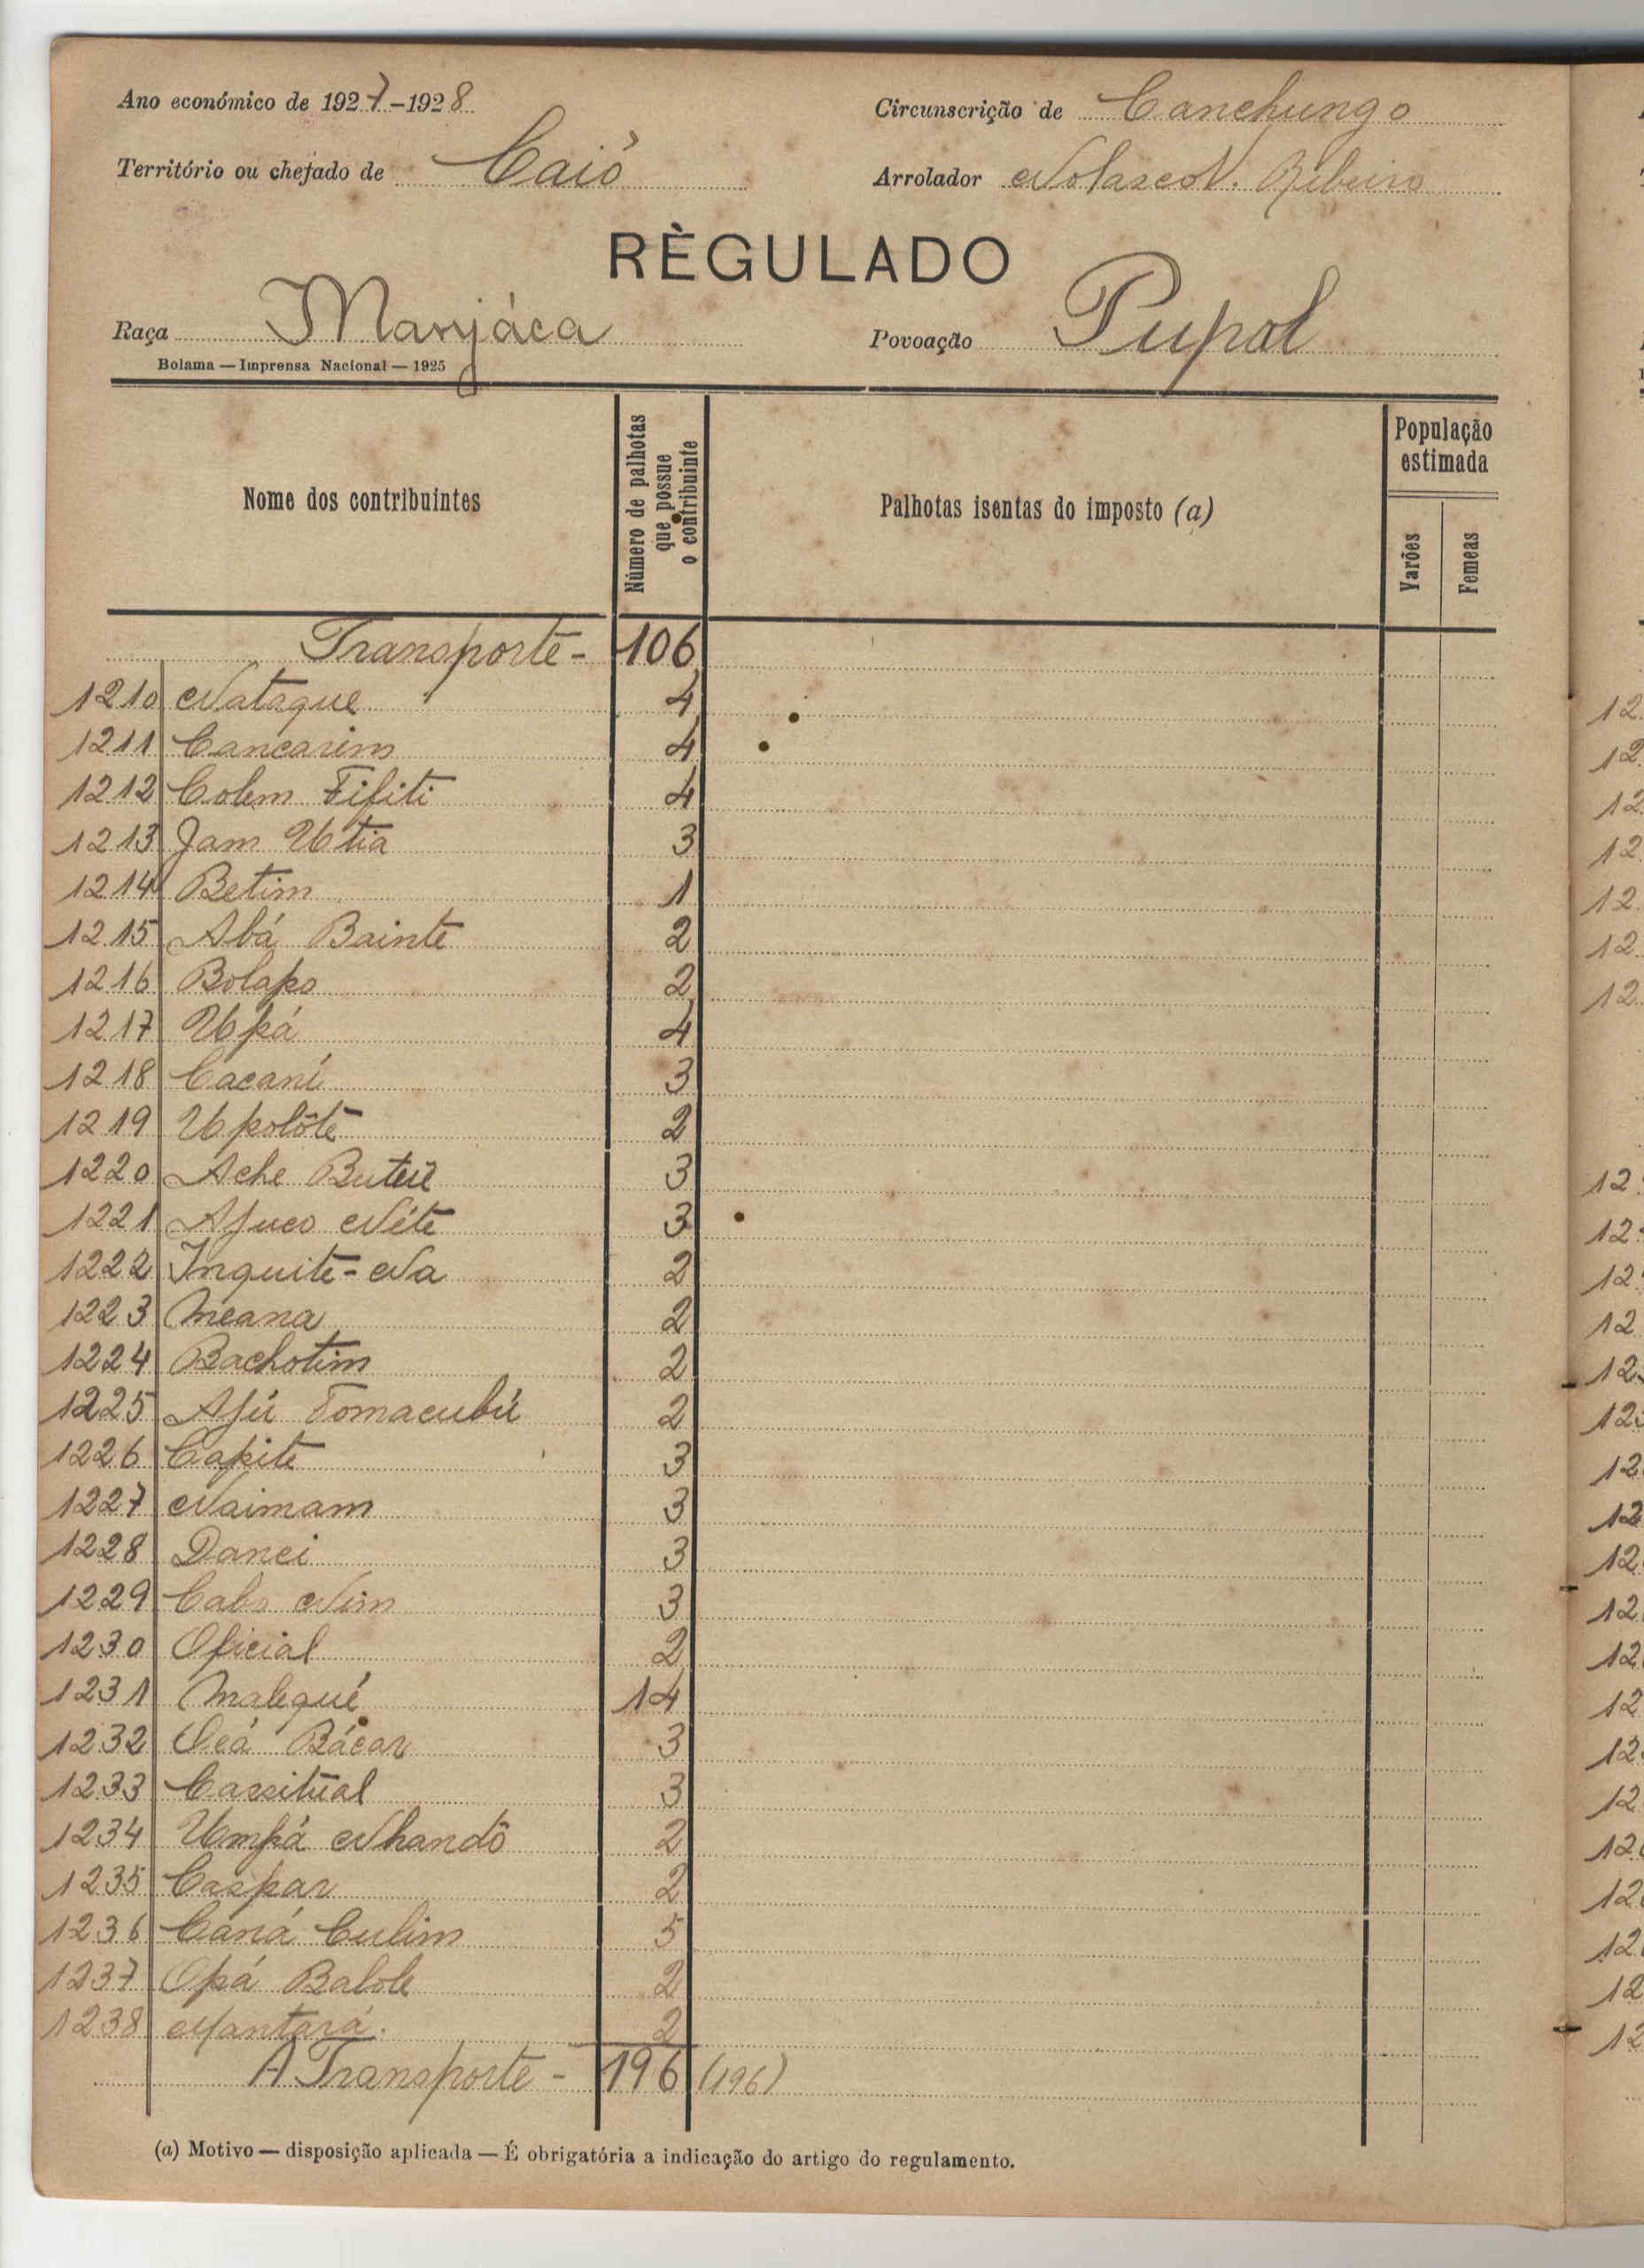 Ano económico de 1927-1928
Circunscrição de Canchungo
Território ou chefado de Caió
Arrolador Nolasco N. Ribeiro
RÈGULADO
Raça Manjáca
Povoação Pupol
Bolama — Imprensa Nacional — 1925
Nome dos contribuintes
Número de palhotas que possue o contribuinte
Palhotas isentas do imposto (a)
População estimada
Varões
Femeas
Transporte - 106
1210 Nataque 4
1211 Cancarim 4
1212 Colem Fifiti 4
1213 Jam Utia 3
1214 Betim 1
1215 Abá Bainte 2
1216 Bolapo 2
1217 Upá 4
1218 Cacaní 3
1219 Upolôte 2
1220 Ache Buteie 3
1221 Afuco Néte 3
1222 Inquite-Na 2
1223 Meana 2
1224 Bachotim 2
1225 Afú Tomacubú 2
1226 Capite 3
1227 Naimam 3
1228 Danci 3
1229 Cabo Nim 3
1230 Oficial 2
1231 Malequé 14
1232 Ocá Bácar 3
1233 Cassitual 3
1234 Umpá Nhandô 2
1235 Caspar 2
1236 Caná Culim 5
1237 Opá Balole 2
1238 Nantará. 2
A Transporte - 196 (196)
(a) Motivo — disposição aplicada — É obrigatória a indicação do artigo do regulamento.